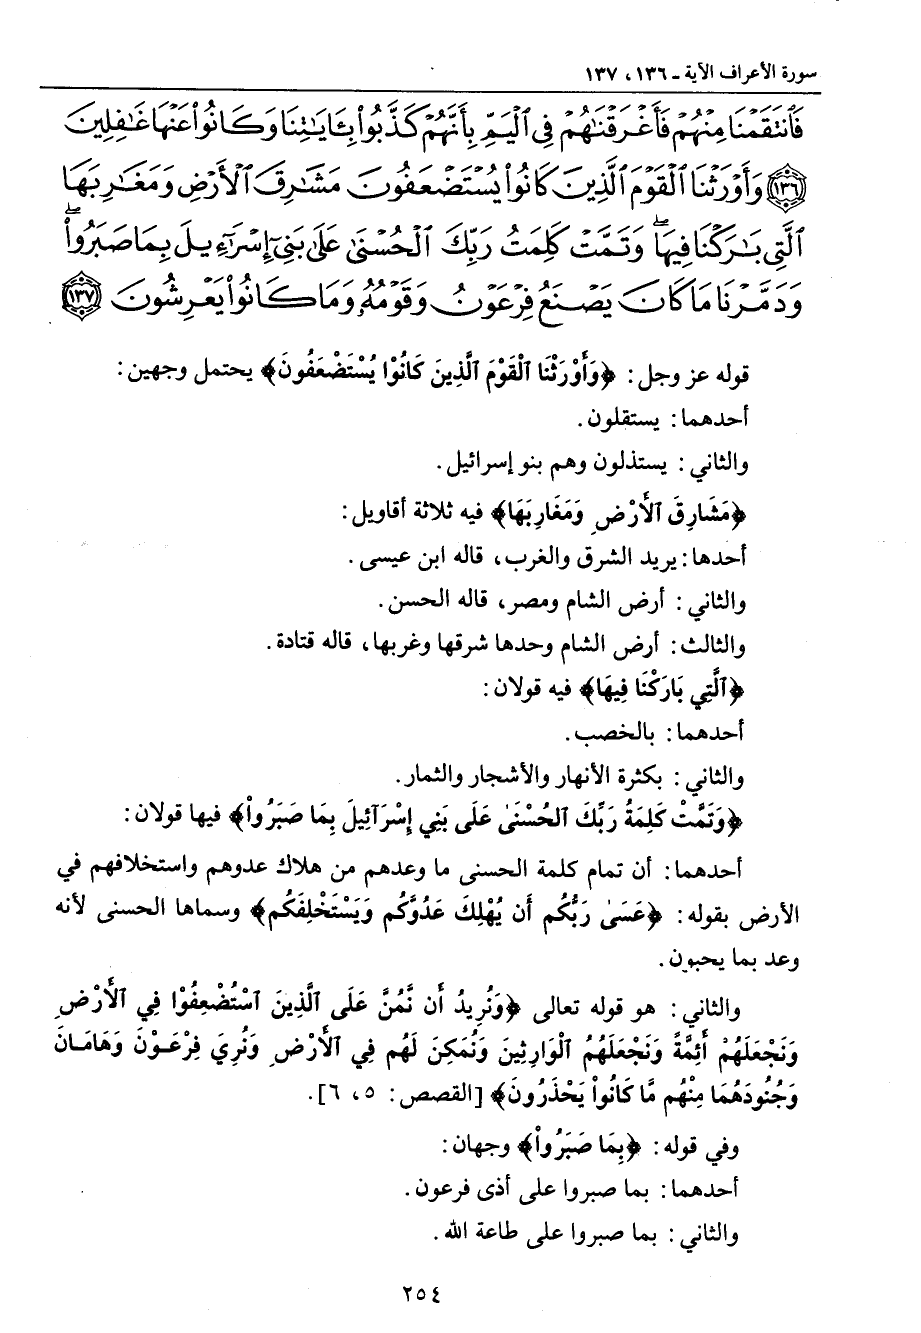 سورة الأعراف الآية ـ ١٣٦، ١٣٧
فَٱنتَقَمۡنَا مِنۡهُمۡ فَأَغۡرَقۡنَٰهُمۡ فِي ٱلۡيَمِّ بِأَنَّهُمۡ كَذَّبُواْ بِـَٔايَٰتِنَا وَكَانُواْ عَنۡهَا غَٰفِلِينَ
﴿١٣٦﴾ وَأَوۡرَثۡنَا ٱلۡقَوۡمَ ٱلَّذِينَ كَانُواْ يُسۡتَضۡعَفُونَ مَشَٰرِقَ ٱلۡأَرۡضِ وَمَغَٰرِبَهَا
ٱلَّتِي بَٰرَكۡنَا فِيهَاۖ وَتَمَّتۡ كَلِمَتُ رَبِّكَ ٱلۡحُسۡنَىٰ عَلَىٰ بَنِيٓ إِسۡرَٰٓءِيلَ بِمَا صَبَرُواْۖ
وَدَمَّرۡنَا مَا كَانَ يَصۡنَعُ فِرۡعَوۡنُ وَقَوۡمُهُۥ وَمَا كَانُواْ يَعۡرِشُونَ ﴿١٣٧﴾
قوله عز وجل: ﴿وَأَوْرَثْنَا الْقَوْمَ الَّذِينَ كَانُوا يُسْتَضْعَفُونَ﴾ يحتمل وجهين:
أحدهما: يستقلون.
والثاني: يستذلون وهم بنو إسرائيل.
﴿مَشَارِقَ الْأَرْضِ وَمَغَارِبَهَا﴾ فيه ثلاثة أقاويل:
أحدها: يريد الشرق والغرب، قاله ابن عيسى.
والثاني: أرض الشام ومصر، قاله الحسن.
والثالث: أرض الشام وحدها شرقها وغربها، قاله قتادة.
﴿الَّتِي بَارَكْنَا فِيهَا﴾ فيه قولان:
أحدهما: بالخصب.
والثاني: بكثرة الأنهار والأشجار والثمار.
﴿وَتَمَّتْ كَلِمَةُ رَبِّكَ الْحُسْنَىٰ عَلَى بَنِي إِسْرَآئِيلَ بِمَا صَبَرُواْ﴾ فيها قولان:
أحدهما: أن تمام كلمة الحسنى ما وعدهم من هلاك عدوهم واستخلافهم في
الأرض بقوله: ﴿عَسَىٰ رَبُّكُم أَن يُهْلِكَ عَدُوَّكُم وَيَسْتَخْلِفَكُم﴾ وسماها الحسنى لأنه
وعد بما يحبون.
والثاني: هو قوله تعالى ﴿وَنُرِيدُ أَن نَّمُنَّ عَلَى الَّذِينَ اسْتُضْعِفُوْا فِي الْأَرْضِ
وَنَجْعَلَهُمْ أَئِمَّةً وَنَجْعَلَهُمُ الْوَارِثِينَ وَنُمَكِنَ لَهُم فِي الْأَرْضِ وَنُرِيَ فِرْعَوْنَ وَهَامَانَ
وَجُنُودَهُمَا مِنْهُم مَّا كَانُواْ يَحْذَرُونَ﴾ [القصص: ٥، ٦].
وفي قوله: ﴿بِمَا صَبَرُواْ﴾ وجهان:
أحدهما: بما صبروا على أذى فرعون.
والثاني: بما صبروا على طاعة الله.
٢٥٤